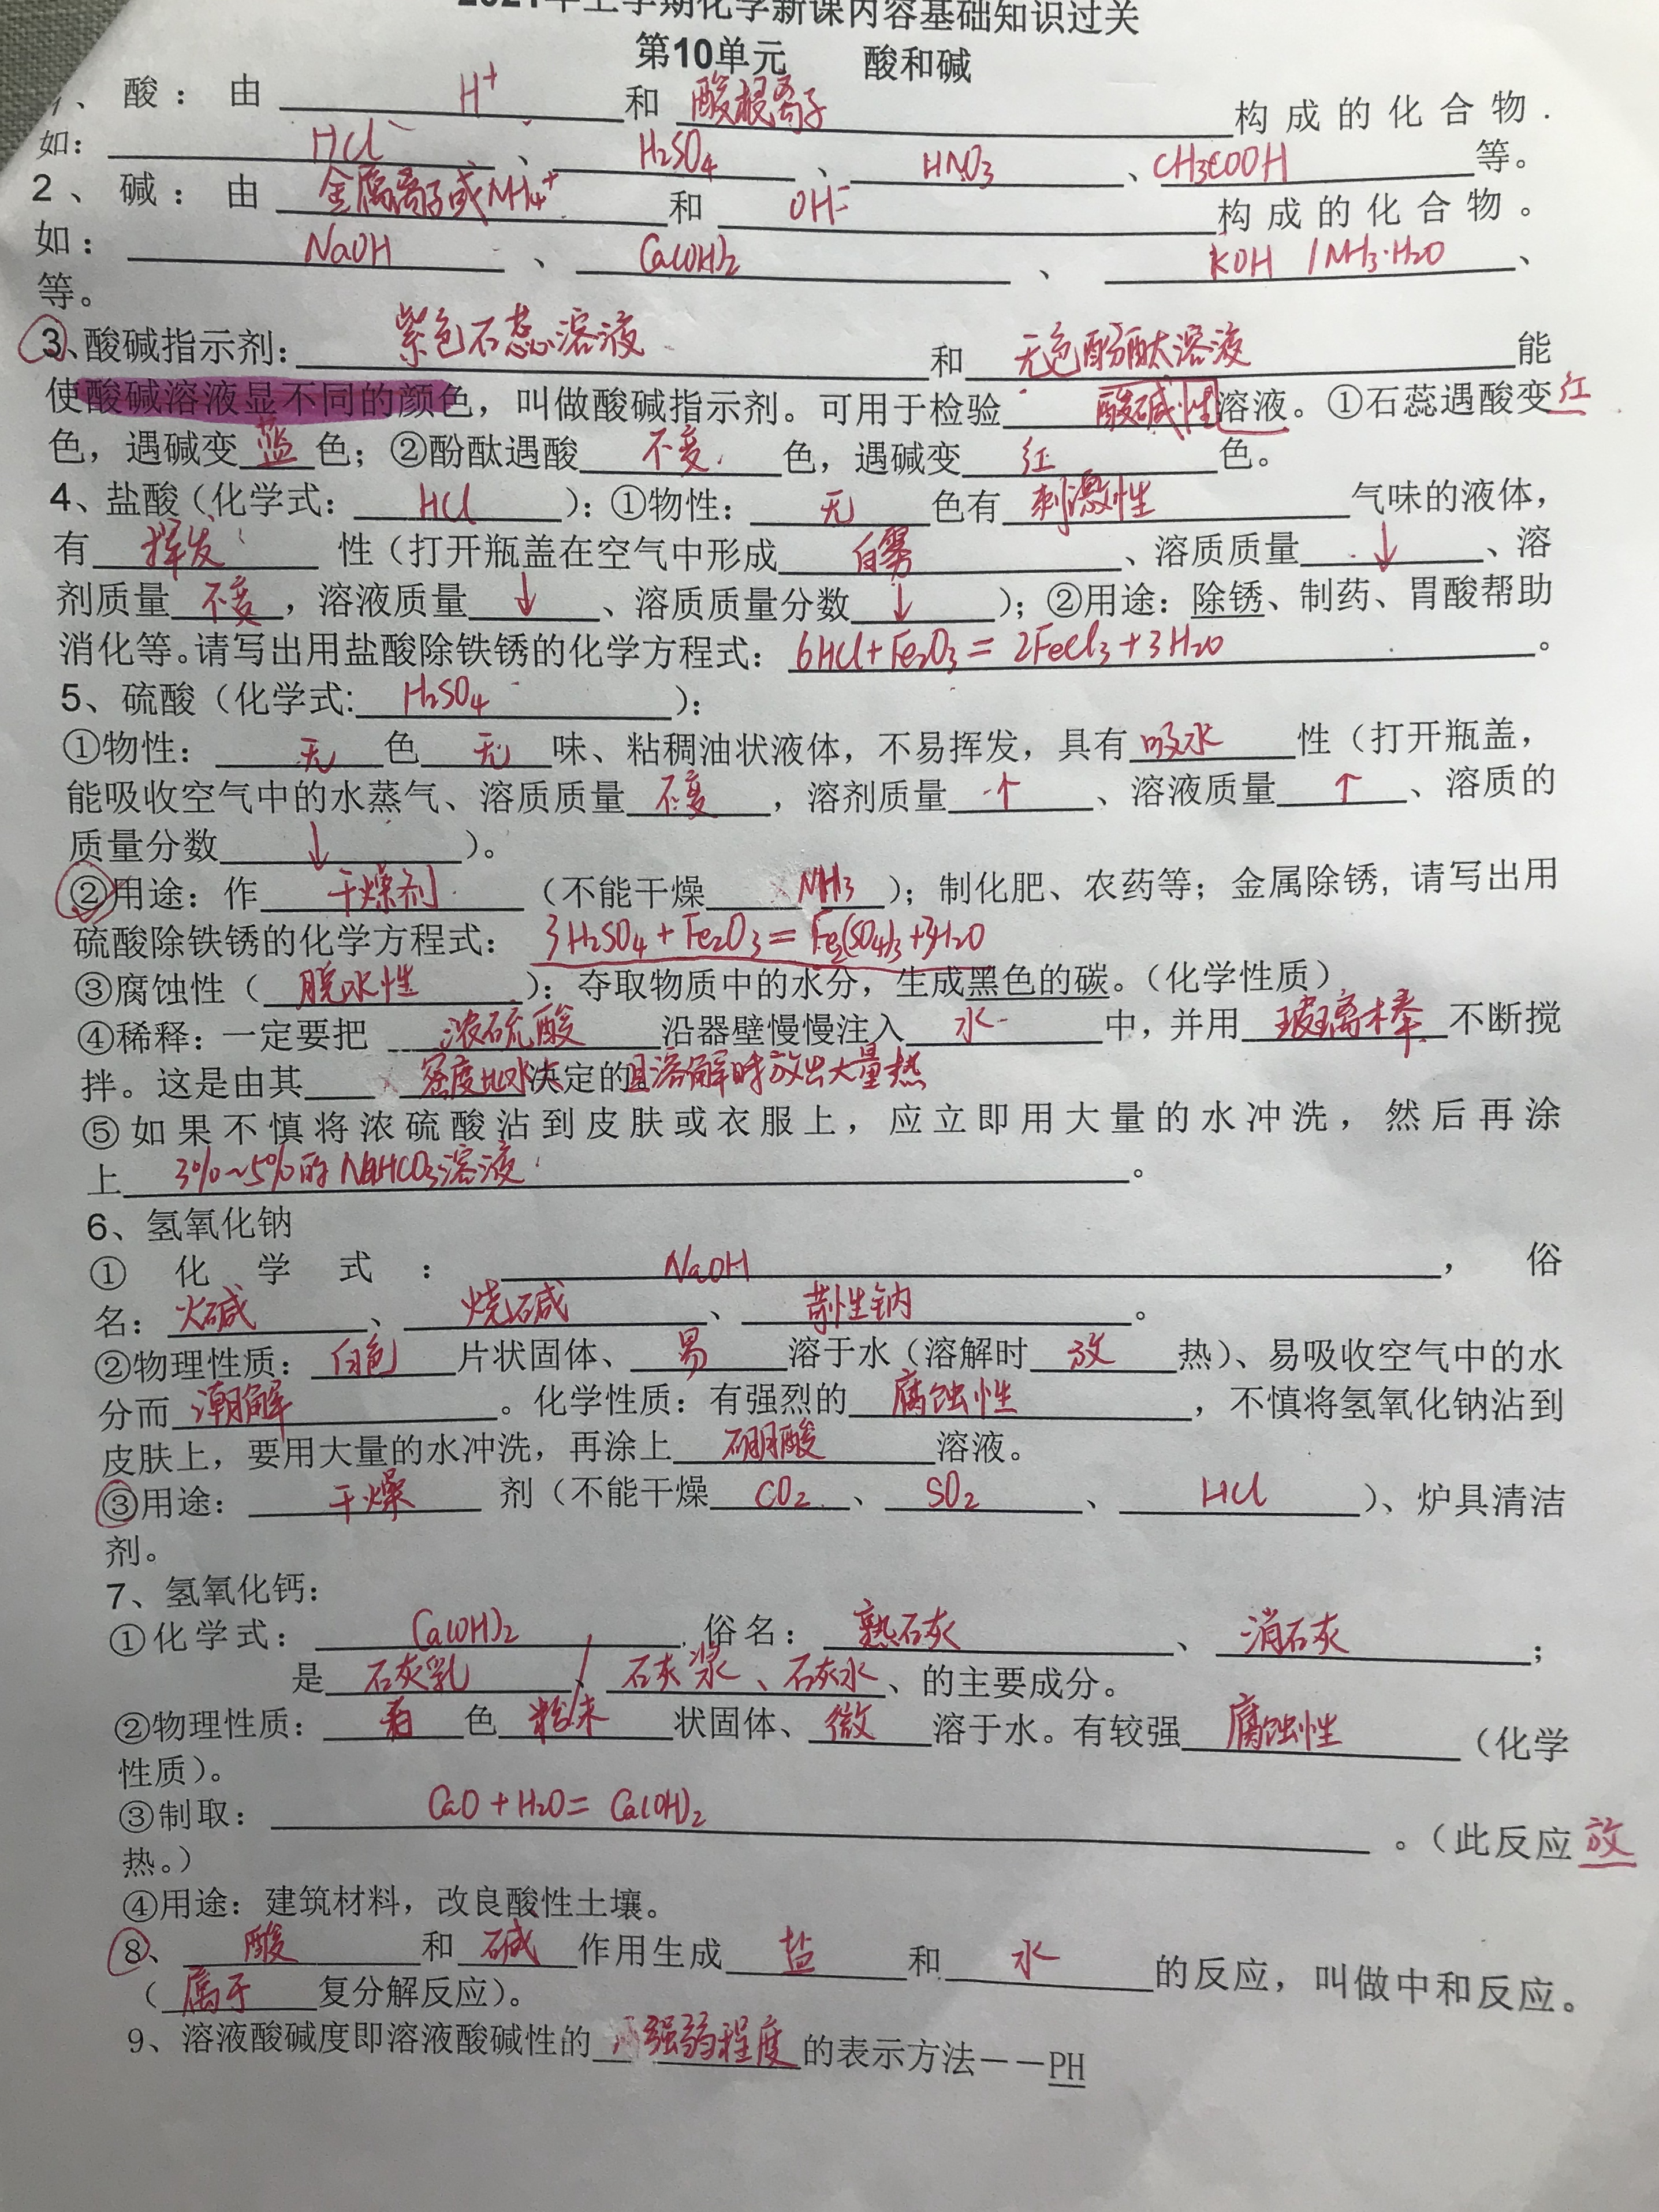 2021年上学期化学新课内容基础知识过关
第10单元 酸和碱
1、酸：由 H⁺ 和 酸根离子 构成的化合物.
如: HCl 、 H₂SO₄ 、 HNO₃ 、 CH₃COOH 等。
2、碱：由 金属离子或NH₄⁺ 和 OH⁻ 构成的化合物。
如: NaOH 、 Ca(OH)₂ 、 KOH / NH₃·H₂O 、
等。
3、酸碱指示剂: 紫色石蕊溶液 和 无色酚酞溶液 能
使酸碱溶液显不同的颜色，叫做酸碱指示剂。可用于检验 酸碱性 溶液。①石蕊遇酸变 红
色，遇碱变 蓝 色；②酚酞遇酸 不变 色，遇碱变 红 色。
4、盐酸（化学式: HCl ）：①物性： 无 色有 刺激性 气味的液体，
有 挥发 性（打开瓶盖在空气中形成 白雾 、溶质质量 ↓ 、溶
剂质量 不变 ，溶液质量 ↓ 、溶质质量分数 ↓ ）；②用途：除锈、制药、胃酸帮助
消化等。请写出用盐酸除铁锈的化学方程式： 6HCl+Fe₂O₃= 2FeCl₃+3H₂O 。
5、硫酸（化学式: H₂SO₄ ）：
①物性： 无 色 无 味、粘稠油状液体，不易挥发，具有 吸水 性（打开瓶盖，
能吸收空气中的水蒸气、溶质质量 不变 ，溶剂质量 ↑ 、溶液质量 ↑ 、溶质的
质量分数 ↓ ）。
②用途：作 干燥剂 （不能干燥 NH₃ ）；制化肥、农药等；金属除锈, 请写出用
硫酸除铁锈的化学方程式： 3H₂SO₄+Fe₂O₃=Fe₂(SO₄)₃+3H₂O
③腐蚀性（ 脱水性 ）：夺取物质中的水分，生成黑色的碳。（化学性质）
④稀释：一定要把 浓硫酸 沿器壁慢慢注入 水 中，并用 玻璃棒 不断搅
拌。这是由其 密度比水大 决定的 且溶解时放出大量热
⑤如果不慎将浓硫酸沾到皮肤或衣服上，应立即用大量的水冲洗，然后再涂
上 3%~5%的NaHCO₃溶液 。
6、氢氧化钠
①化学式： NaOH ，俗
名: 火碱 、 烧碱 、 苛性钠 。
②物理性质: 白色 片状固体、 易 溶于水（溶解时 放 热）、易吸收空气中的水
分而 潮解 。化学性质：有强烈的 腐蚀性 ，不慎将氢氧化钠沾到
皮肤上，要用大量的水冲洗，再涂上 硼酸 溶液。
③用途： 干燥 剂（不能干燥 CO₂ 、 SO₂ 、 HCl ）、炉具清洁
剂。
7、氢氧化钙:
①化学式： Ca(OH)₂ 俗名： 熟石灰 、 消石灰 ；
是 石灰乳 、 石灰浆 、石灰水 、的主要成分。
②物理性质： 白 色 粉末 状固体、 微 溶于水。有较强 腐蚀性 （化学
性质）。
③制取： CaO+H₂O= Ca(OH)₂ 。（此反应 放
热。）
④用途：建筑材料，改良酸性土壤。
8、 酸 和 碱 作用生成 盐 和 水 的反应，叫做中和反应。
（ 属于 复分解反应）。
9、溶液酸碱度即溶液酸碱性的 强弱程度 的表示方法－－PH